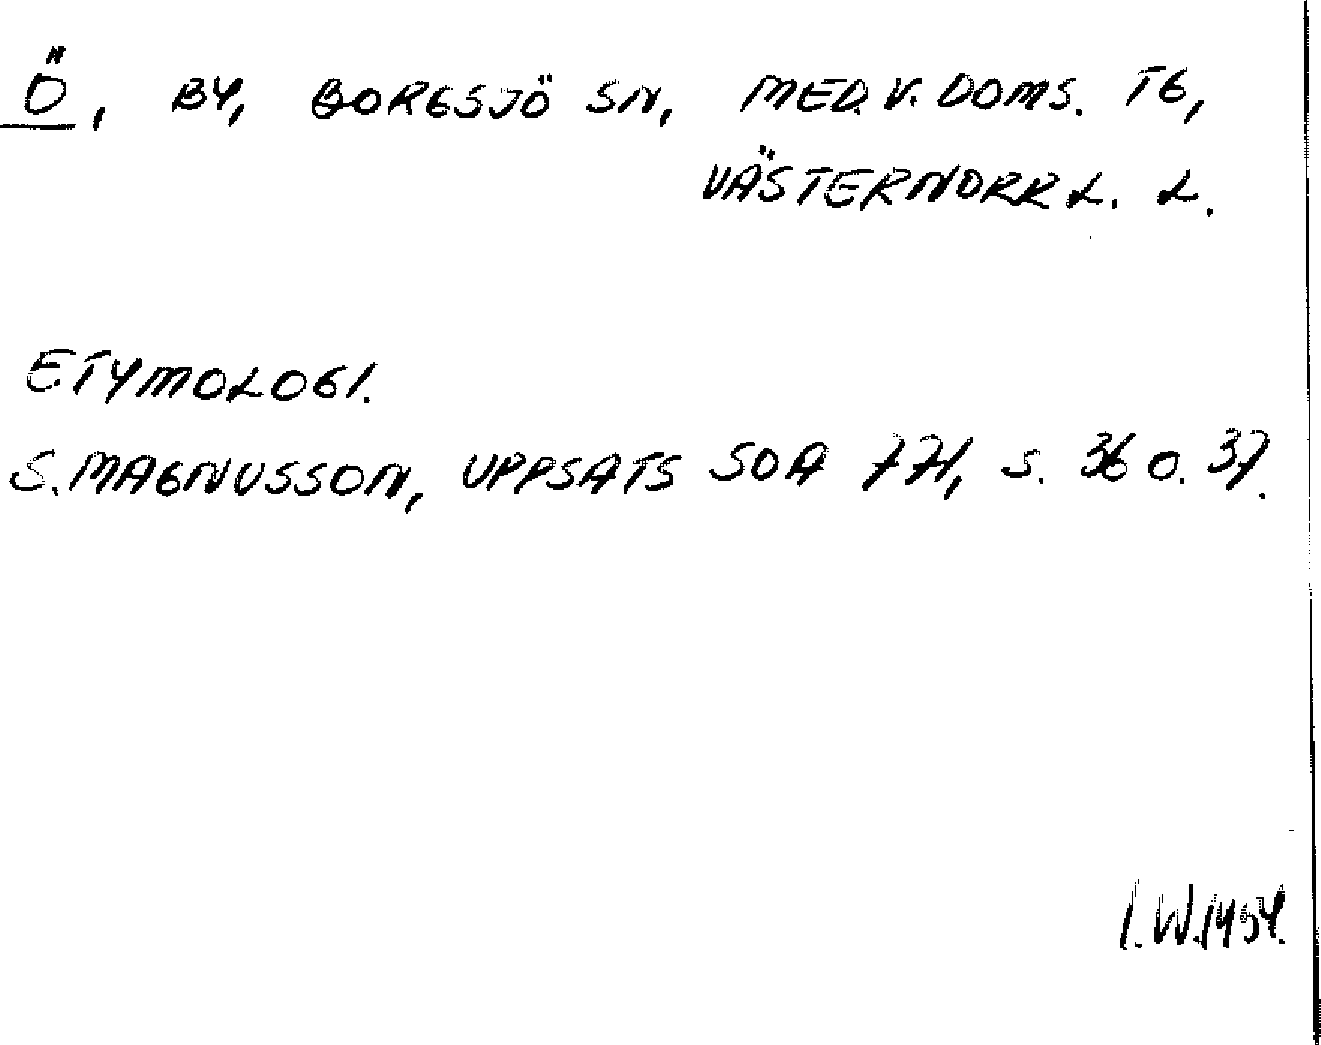 Ö, BY, BORGSJÖ SN, MED.V. DOMS. TG,
VÄSTERNORRL. L.
ETYMOLOGI.
S. MAGNUSSON, UPPSATS SOA 771, S. 36 O. 37.
I.W. 1954.